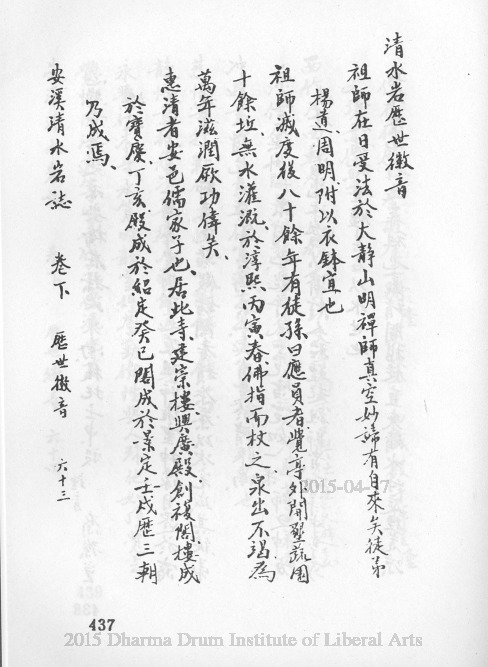 清水岩歷世徽音
祖師在日受法於大静山明禪師真空妙諦有自來矣徒弟
楊道、周明、附以衣鉢宜也
祖師滅度後八十餘年有徒孫曰應員者、覺亭外開墾蔬園
十餘坵、無水灌溉、於淳熙丙寅春佛指而杖之泉出不竭為
萬年滋潤厥功偉矣、
惠清者安邑儒家子也、居此寺、建崇樓、興廣殿、創複閣、樓成
於寶慶、丁亥殿成於紹定癸巳閣成於景定壬戌歷三朝
乃成焉、
安溪清水岩誌　卷下　歷世徽音　六十三
437
2015-04-17
2015 Dharma Drum Institute of Liberal Arts